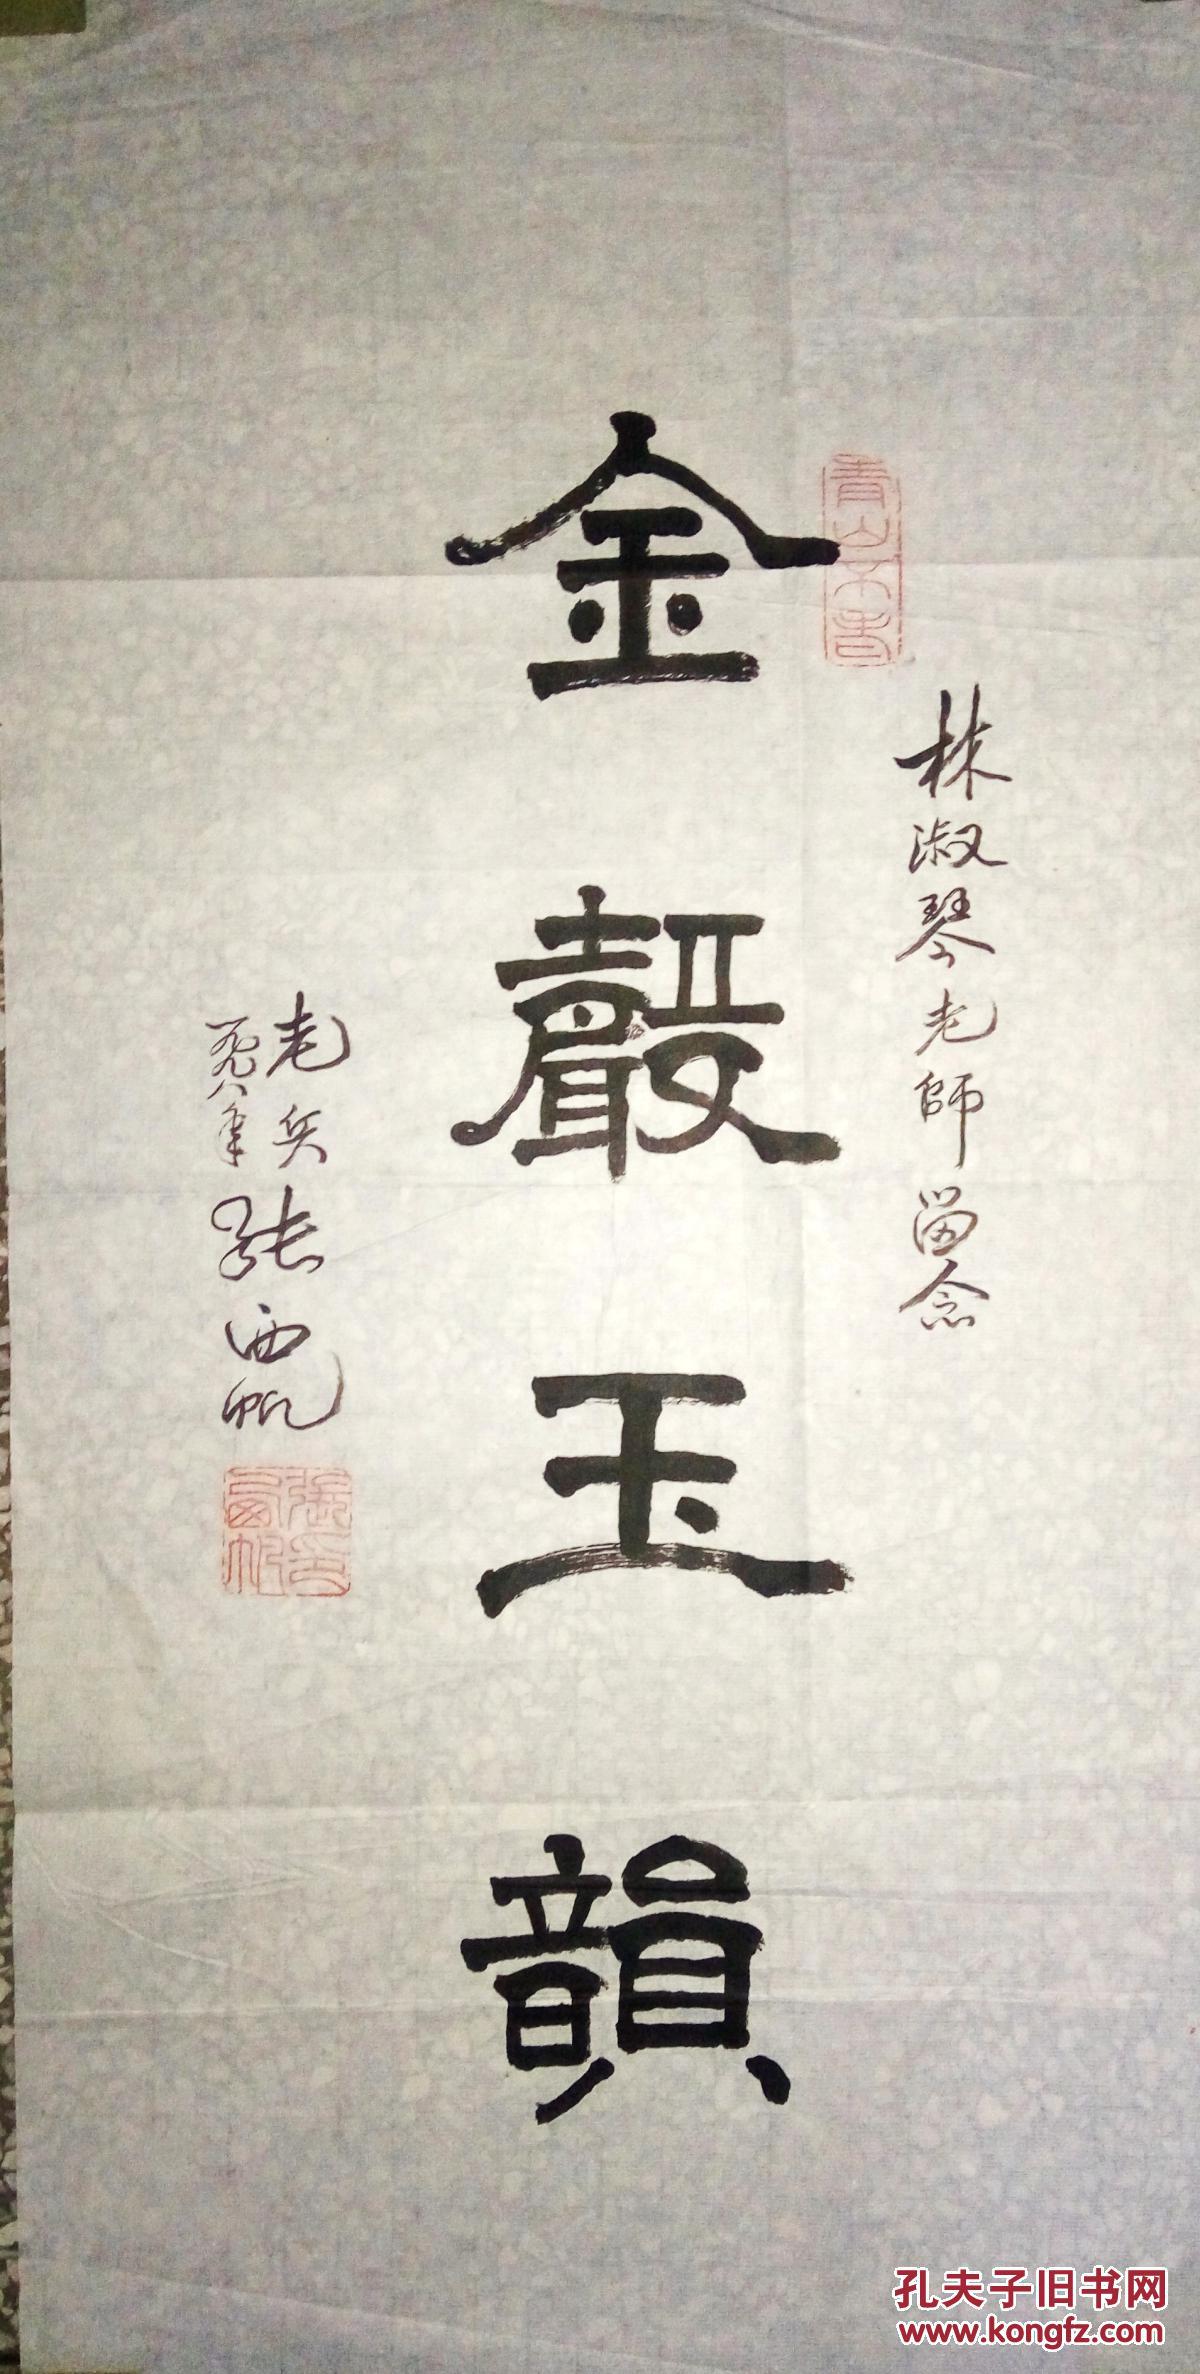 青山不老
林淑琴老師留念
金聲玉韻
老兵張西帆
一九九八年
張西帆印
孔夫子旧书网
www.kongfz.com